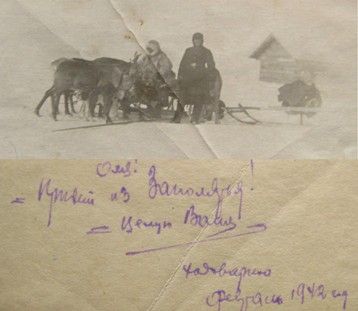 Оля!
Привет из Заполярья!
= Целую Ваня =
Ходоварию
Февраль 1942 год